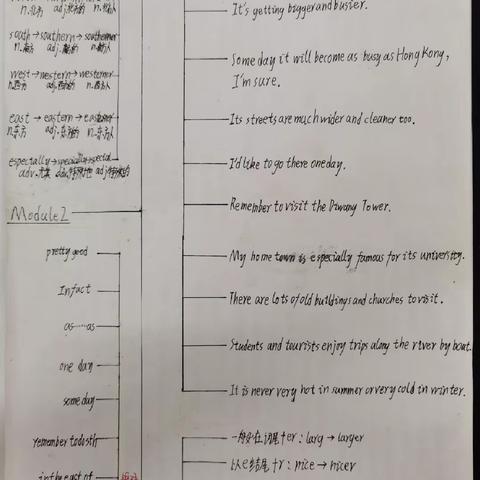 It's getting bigger and busier.
south → southern → southerner
n.南方 adj.南方的 n.南方人
Some day it will become as busy as Hong Kong,
I'm sure.
west → western → westerner
n.西方 adj.西方的 n.西方人
east → eastern → easterner
n.东方 adj.东方的 n.东方人
Its streets are much wider and cleaner too.
especially → specially → special
adv.尤其
I'd like to go there one day.
Module 2
Remember to visit the Diwang Tower.
pretty good
My home town is especially famous for its university.
In fact
There are lots of old buildings and churches to visit.
as……as
Students and tourists enjoy trips along the river by boat.
one day
It is never very hot in summer or very cold in winter.
some day
remember to do sth
一般在词尾+er: larg → larger
以e结尾+r: nice → nicer
in the east of